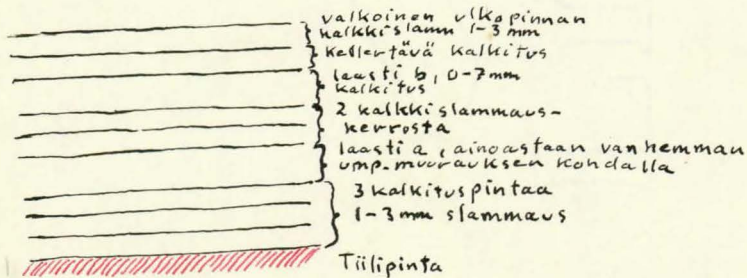 valkoinen ulkopinnan
kalkkislamm 1-3 mm
kellertävä kalkitus
laasti b, 0-7mm
kalkitus
2 kalkkislammaus-
kerrosta
laasti a, ainoastaan vanhemman
ump.muurauksen kohdalla
3 kalkituspintaa
1-3 mm slammaus
Tiilipinta